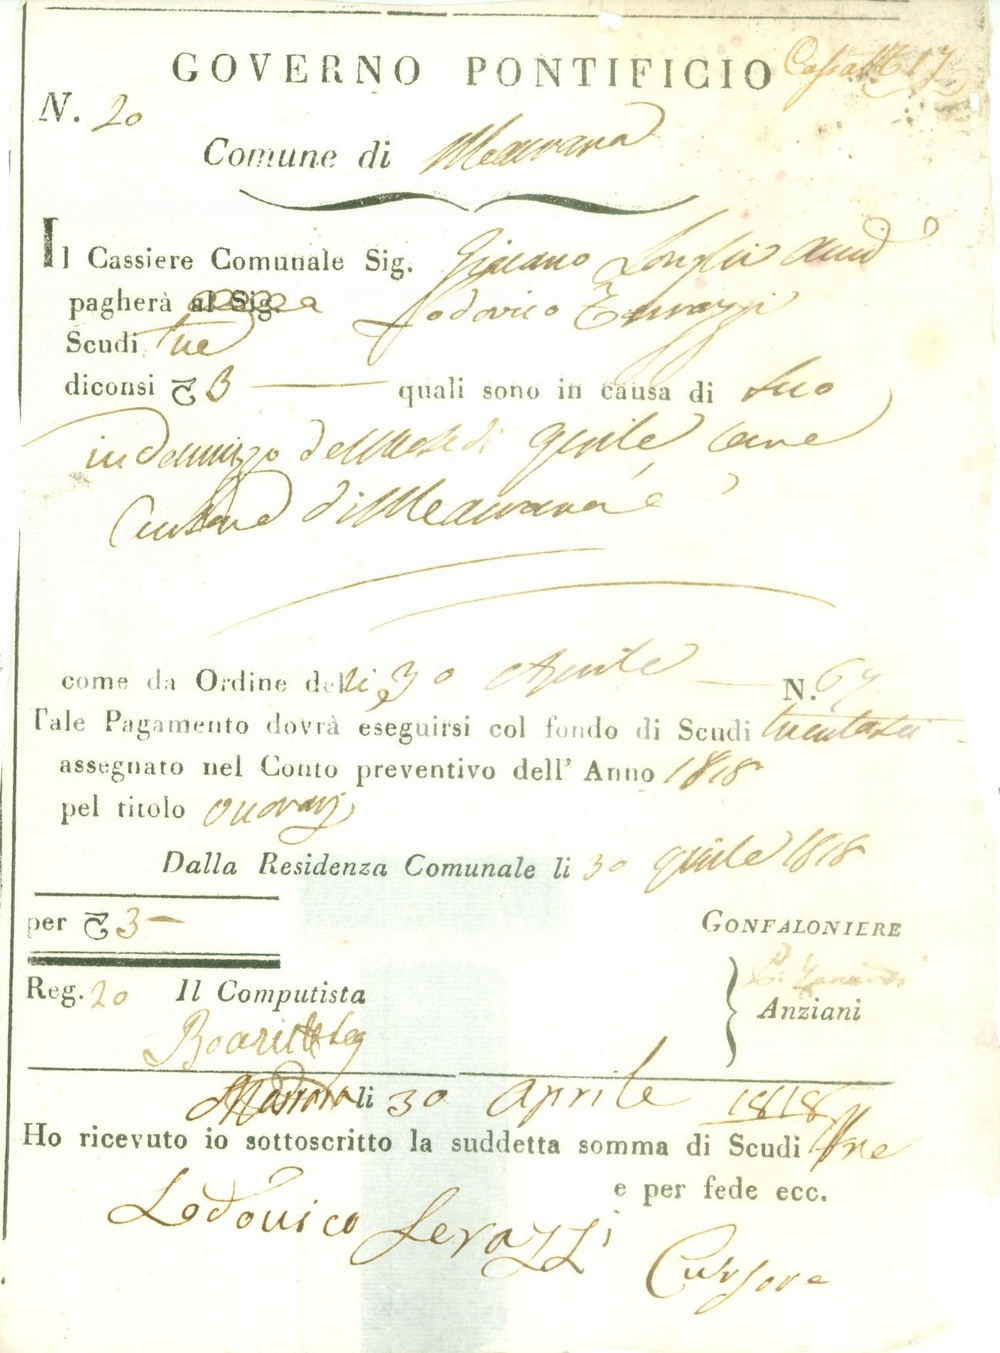 GOVERNO PONTIFICIO
N. 20
Comune di
Il Cassiere Comunale Sig.
pagherà al Sig. Lodovico
Scudi tre
diconsi 3 quali sono in causa di suo
indennizzo del Mese di Aprile come
Cursore di
come da Ordine delli 30 Aprile N. 67
Tale Pagamento dovrà eseguirsi col fondo di Scudi trentasei
assegnato nel Conto preventivo dell' Anno 1818
pel titolo Onorarj
Dalla Residenza Comunale li 30 Aprile 1818
per 3
GONFALONIERE
Reg. 20 Il Computista
Anziani
li 30 Aprile 1818
Ho ricevuto io sottoscritto la suddetta somma di Scudi tre
e per fede ecc.
Lodovico Serazzi
Cursore